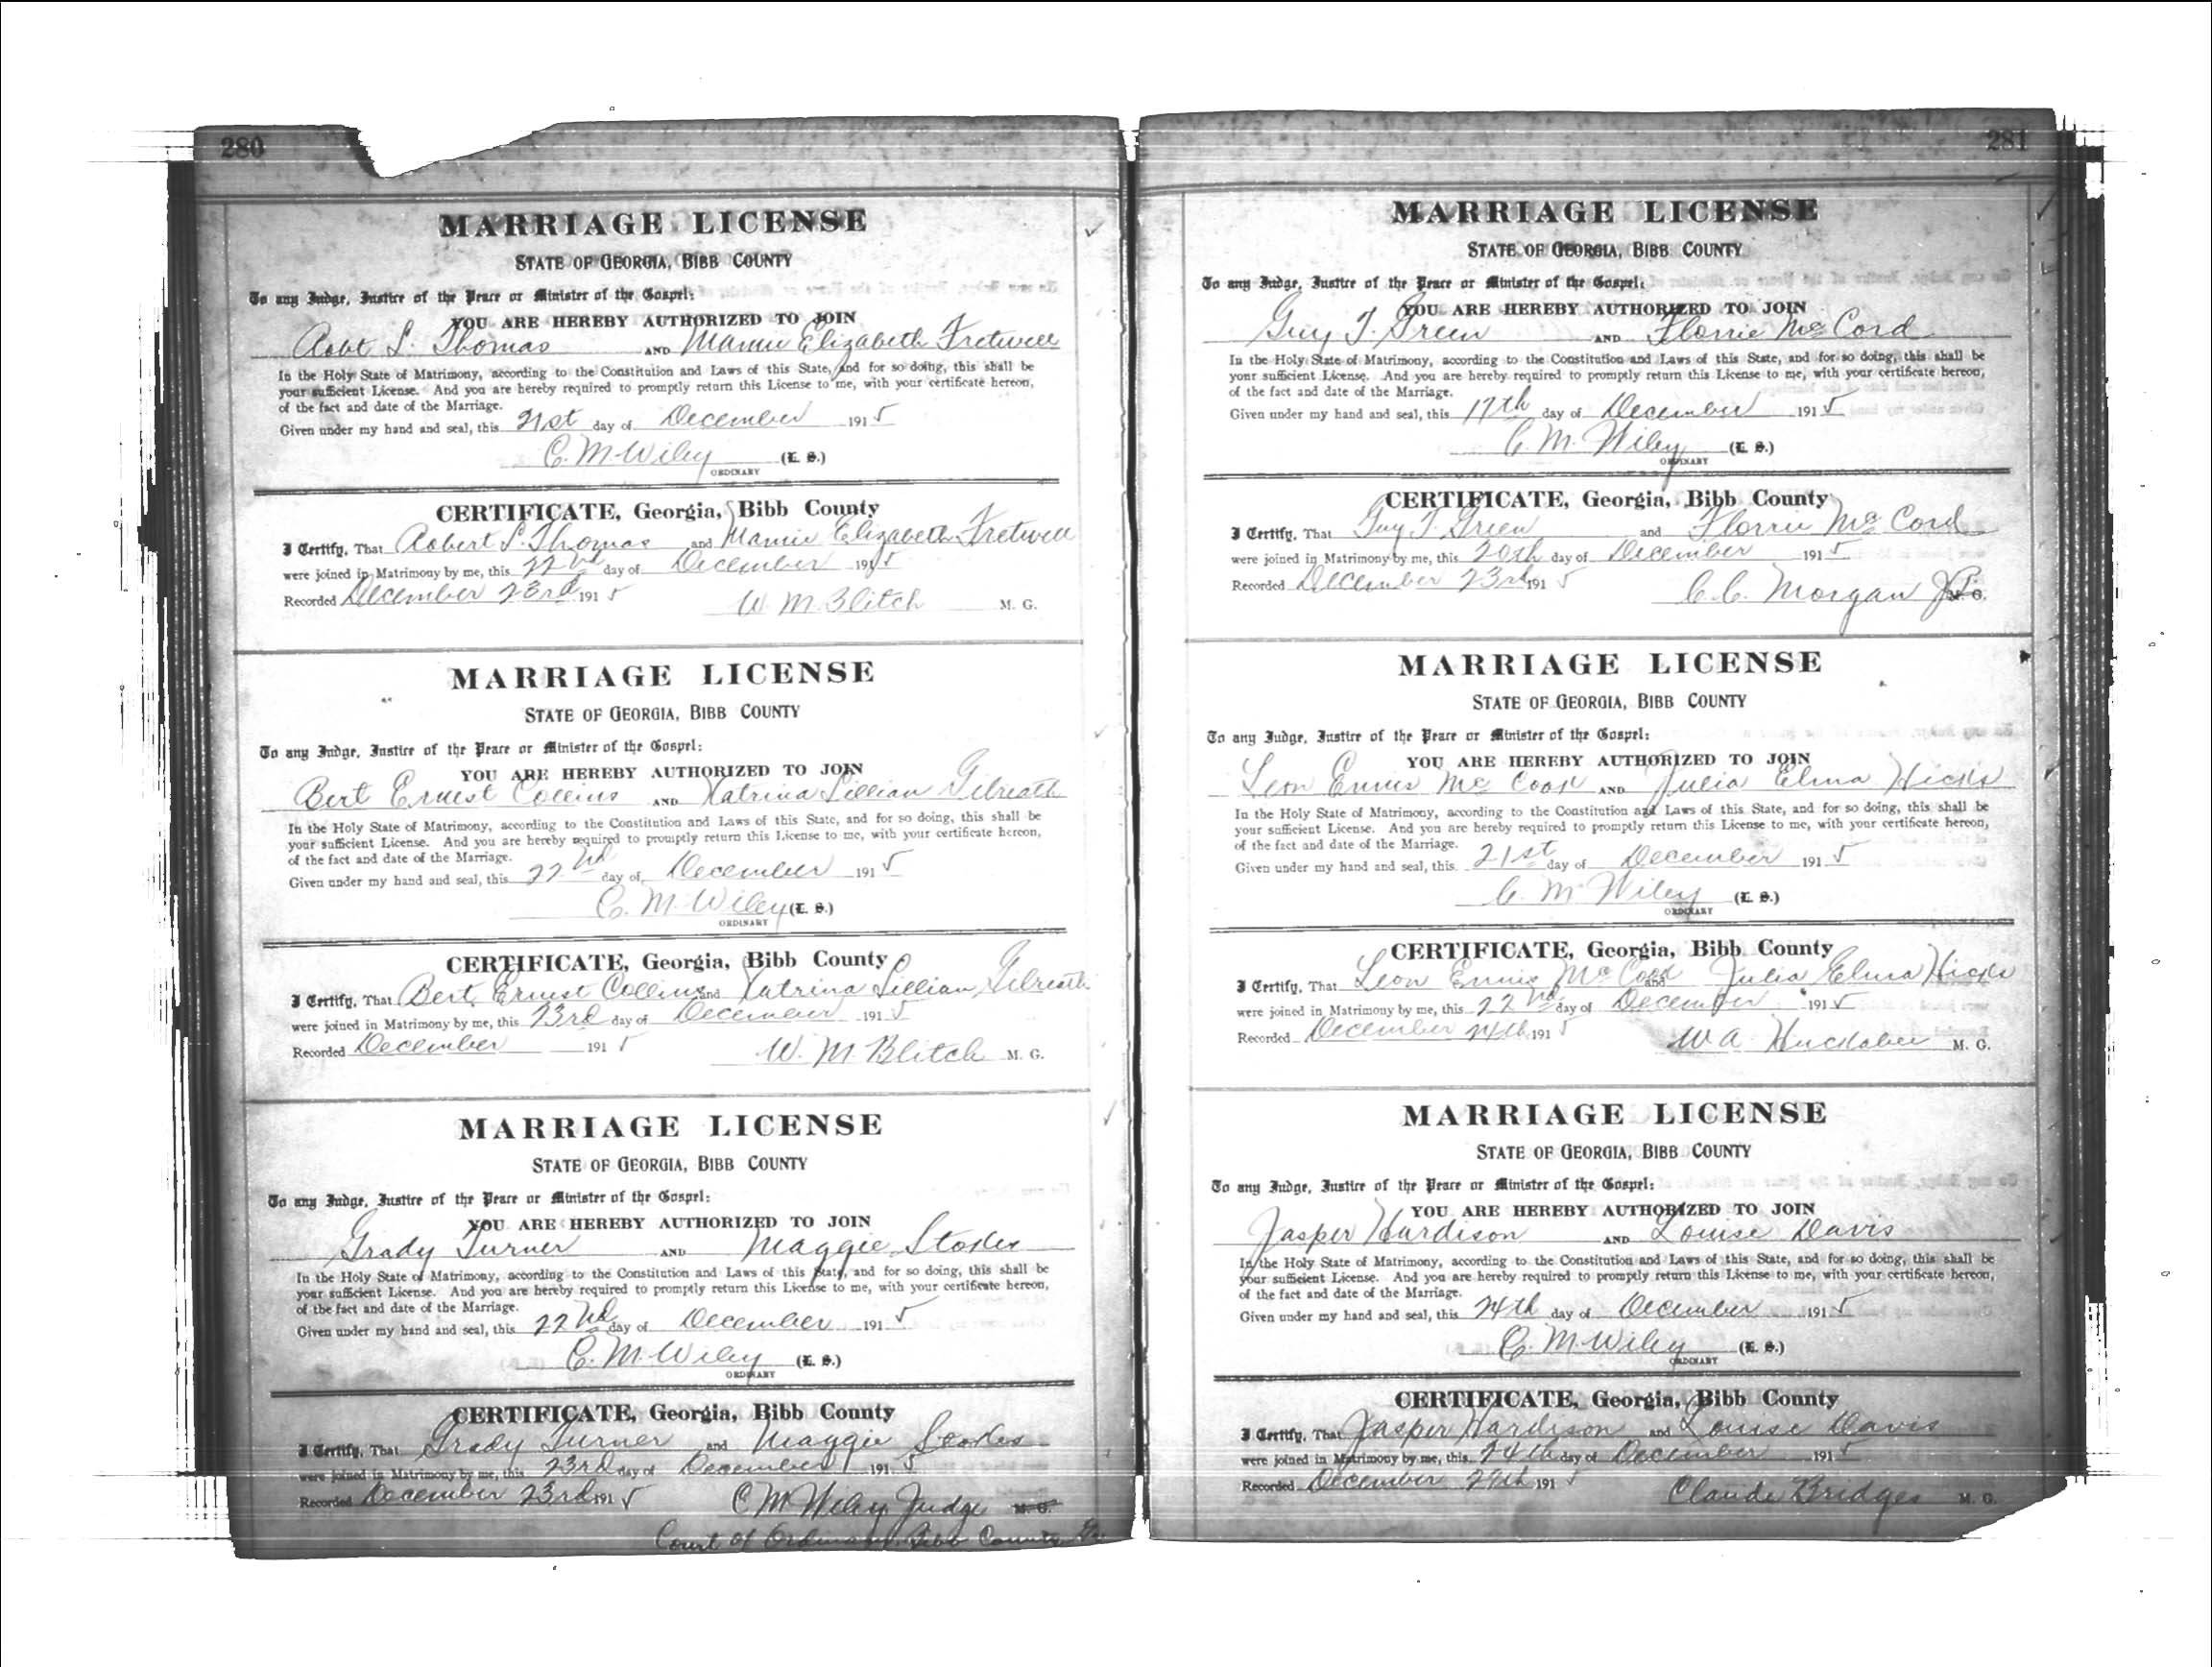 280
MARRIAGE LICENSE
STATE OF GEORGIA, BIBB COUNTY
To any Judge, Justice of the Peace or Minister of the Gospel:
YOU ARE HEREBY AUTHORIZED TO JOIN
Robt S. Thomas AND Mamie Elizabeth Fretwell
In the Holy State of Matrimony, according to the Constitution and Laws of this State, and for so doing, this shall be
your sufficient License. And you are hereby required to promptly return this License to me, with your certificate hereon,
of the fact and date of the Marriage.
Given under my hand and seal, this 21st day of December 1915
C. M. Wiley (L. S.)
ORDINARY
CERTIFICATE, Georgia, Bibb County
I Certify, That Robert S. Thomas and Mamie Elizabeth Fretwell
were joined in Matrimony by me, this 22nd day of December 1915
Recorded December 23rd 1915 W M Blitch M. G.
MARRIAGE LICENSE
STATE OF GEORGIA, BIBB COUNTY
To any Judge, Justice of the Peace or Minister of the Gospel:
YOU ARE HEREBY AUTHORIZED TO JOIN
Bert Ernest Collins AND Katrina Lillian Gilreath
In the Holy State of Matrimony, according to the Constitution and Laws of this State, and for so doing, this shall be
your sufficient License. And you are hereby required to promptly return this License to me, with your certificate hereon,
of the fact and date of the Marriage.
Given under my hand and seal, this 22nd day of December 1915
C. M. Wiley (L. S.)
ORDINARY
CERTIFICATE, Georgia, Bibb County
I Certify, That Bert Ernest Collins and Katrina Lillian Gilreath
were joined in Matrimony by me, this 23rd day of December 1915
Recorded December 1915 W. M Blitch M. G.
MARRIAGE LICENSE
STATE OF GEORGIA, BIBB COUNTY
To any Judge, Justice of the Peace or Minister of the Gospel:
YOU ARE HEREBY AUTHORIZED TO JOIN
Grady Turner AND Maggie Stokes
In the Holy State of Matrimony, according to the Constitution and Laws of this State, and for so doing, this shall be
your sufficient License. And you are hereby required to promptly return this License to me, with your certificate hereon,
of the fact and date of the Marriage.
Given under my hand and seal, this 22nd day of December 1915
C. M. Wiley (L. S.)
ORDINARY
CERTIFICATE, Georgia, Bibb County
I Certify, That Grady Turner and Maggie Stokes
were joined in Matrimony by me, this 23rd day of December 1915
Recorded December 23rd 1915 C M Wiley Judge M. G.
Court of Ordinary, Bibb County Ga.
281
MARRIAGE LICENSE
STATE OF GEORGIA, BIBB COUNTY
To any Judge, Justice of the Peace or Minister of the Gospel:
YOU ARE HEREBY AUTHORIZED TO JOIN
Guy T. Green AND Florrie McCord
In the Holy State of Matrimony, according to the Constitution and Laws of this State, and for so doing, this shall be
your sufficient License. And you are hereby required to promptly return this License to me, with your certificate hereon,
of the fact and date of the Marriage.
Given under my hand and seal, this 17th day of December 1915
C. M. Wiley (L. S.)
ORDINARY
CERTIFICATE, Georgia, Bibb County
I Certify, That Guy T. Green and Florrie McCord
were joined in Matrimony by me, this 20th day of December 1915
Recorded December 23rd 1915 C. C. Morgan J.P. M. G.
MARRIAGE LICENSE
STATE OF GEORGIA, BIBB COUNTY
To any Judge, Justice of the Peace or Minister of the Gospel:
YOU ARE HEREBY AUTHORIZED TO JOIN
Leon Ennis McCook AND Julia Elma Hicks
In the Holy State of Matrimony, according to the Constitution and Laws of this State, and for so doing, this shall be
your sufficient License. And you are hereby required to promptly return this License to me, with your certificate hereon,
of the fact and date of the Marriage.
Given under my hand and seal, this 21st day of December 1915
C. M. Wiley (L. S.)
ORDINARY
CERTIFICATE, Georgia, Bibb County
I Certify, That Leon Ennis McCook and Julia Elma Hicks
were joined in Matrimony by me, this 22nd day of December 1915
Recorded December 24th 1915 W A Huckabee M. G.
MARRIAGE LICENSE
STATE OF GEORGIA, BIBB COUNTY
To any Judge, Justice of the Peace or Minister of the Gospel:
YOU ARE HEREBY AUTHORIZED TO JOIN
Jasper Hardison AND Louise Davis
In the Holy State of Matrimony, according to the Constitution and Laws of this State, and for so doing, this shall be
your sufficient License. And you are hereby required to promptly return this License to me, with your certificate hereon,
of the fact and date of the Marriage.
Given under my hand and seal, this 24th day of December 1915
C. M. Wiley (L. S.)
ORDINARY
CERTIFICATE, Georgia, Bibb County
I Certify, That Jasper Hardison and Louise Davis
were joined in Matrimony by me, this 24th day of December 1915
Recorded December 27th 1915 Claude Bridges M. G.